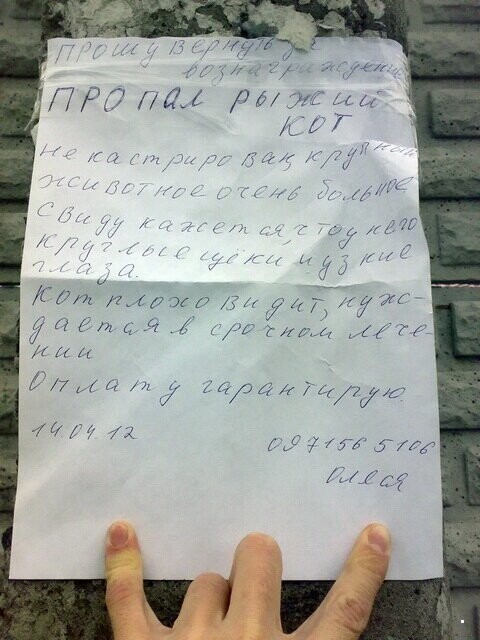 Прошу вернуть за
вознаграждение
ПРОПАЛ РЫЖИЙ
КОТ
не кастрирован, крупный
животное очень больное
свиду кажется, что у него
круглые щёки, и узкие
глаза.
Кот плохо видит, нуж-
дается в срочном лече-
нии
Оплату гарантирую.
14.04.12
0971565106
Олеся